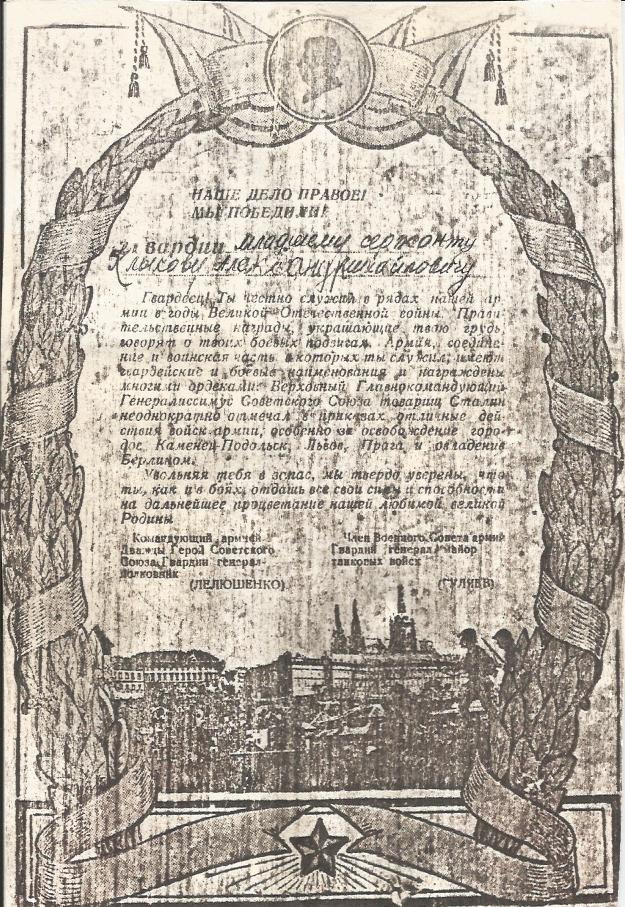 НАШЕ ДЕЛО ПРАВОЕ!
МЫ ПОБЕДИЛИ!
гвардии младшему сержанту
Клыкову Александру Михайловичу
Гвардеец! Ты честно служил в рядах нашей ар-
мии в годы Великой Отечественной войны. Прави-
тельственные награды, украшающие твою грудь,
говорят о твоих боевых подвигах. Армия, соедине-
ние и воинская часть в которых ты служил, имеют
гвардейские и боевые наименования и награждены
многими орденами. Верховный Главнокомандующий
Генералиссимус Советского Союза товарищ Сталин
неоднократно отмечал в приказах отличные дей-
ствия войск армии, особенно за освобождение горо-
дов Каменец-Подольск, Львов, Прага и овладение
Берлином.
Увольняя тебя в запас, мы твердо уверены, что
ты, как и в боях, отдашь все свои силы и способности
на дальнейшее процветание нашей любимой великой
Родины
Командующий армией
Дважды Герой Советского
Союза Гвардии генерал-
полковник
(ЛЕЛЮШЕНКО)
Член Военного Совета армии
Гвардии генерал майор
танковых войск
(ГУЛЯЕВ)